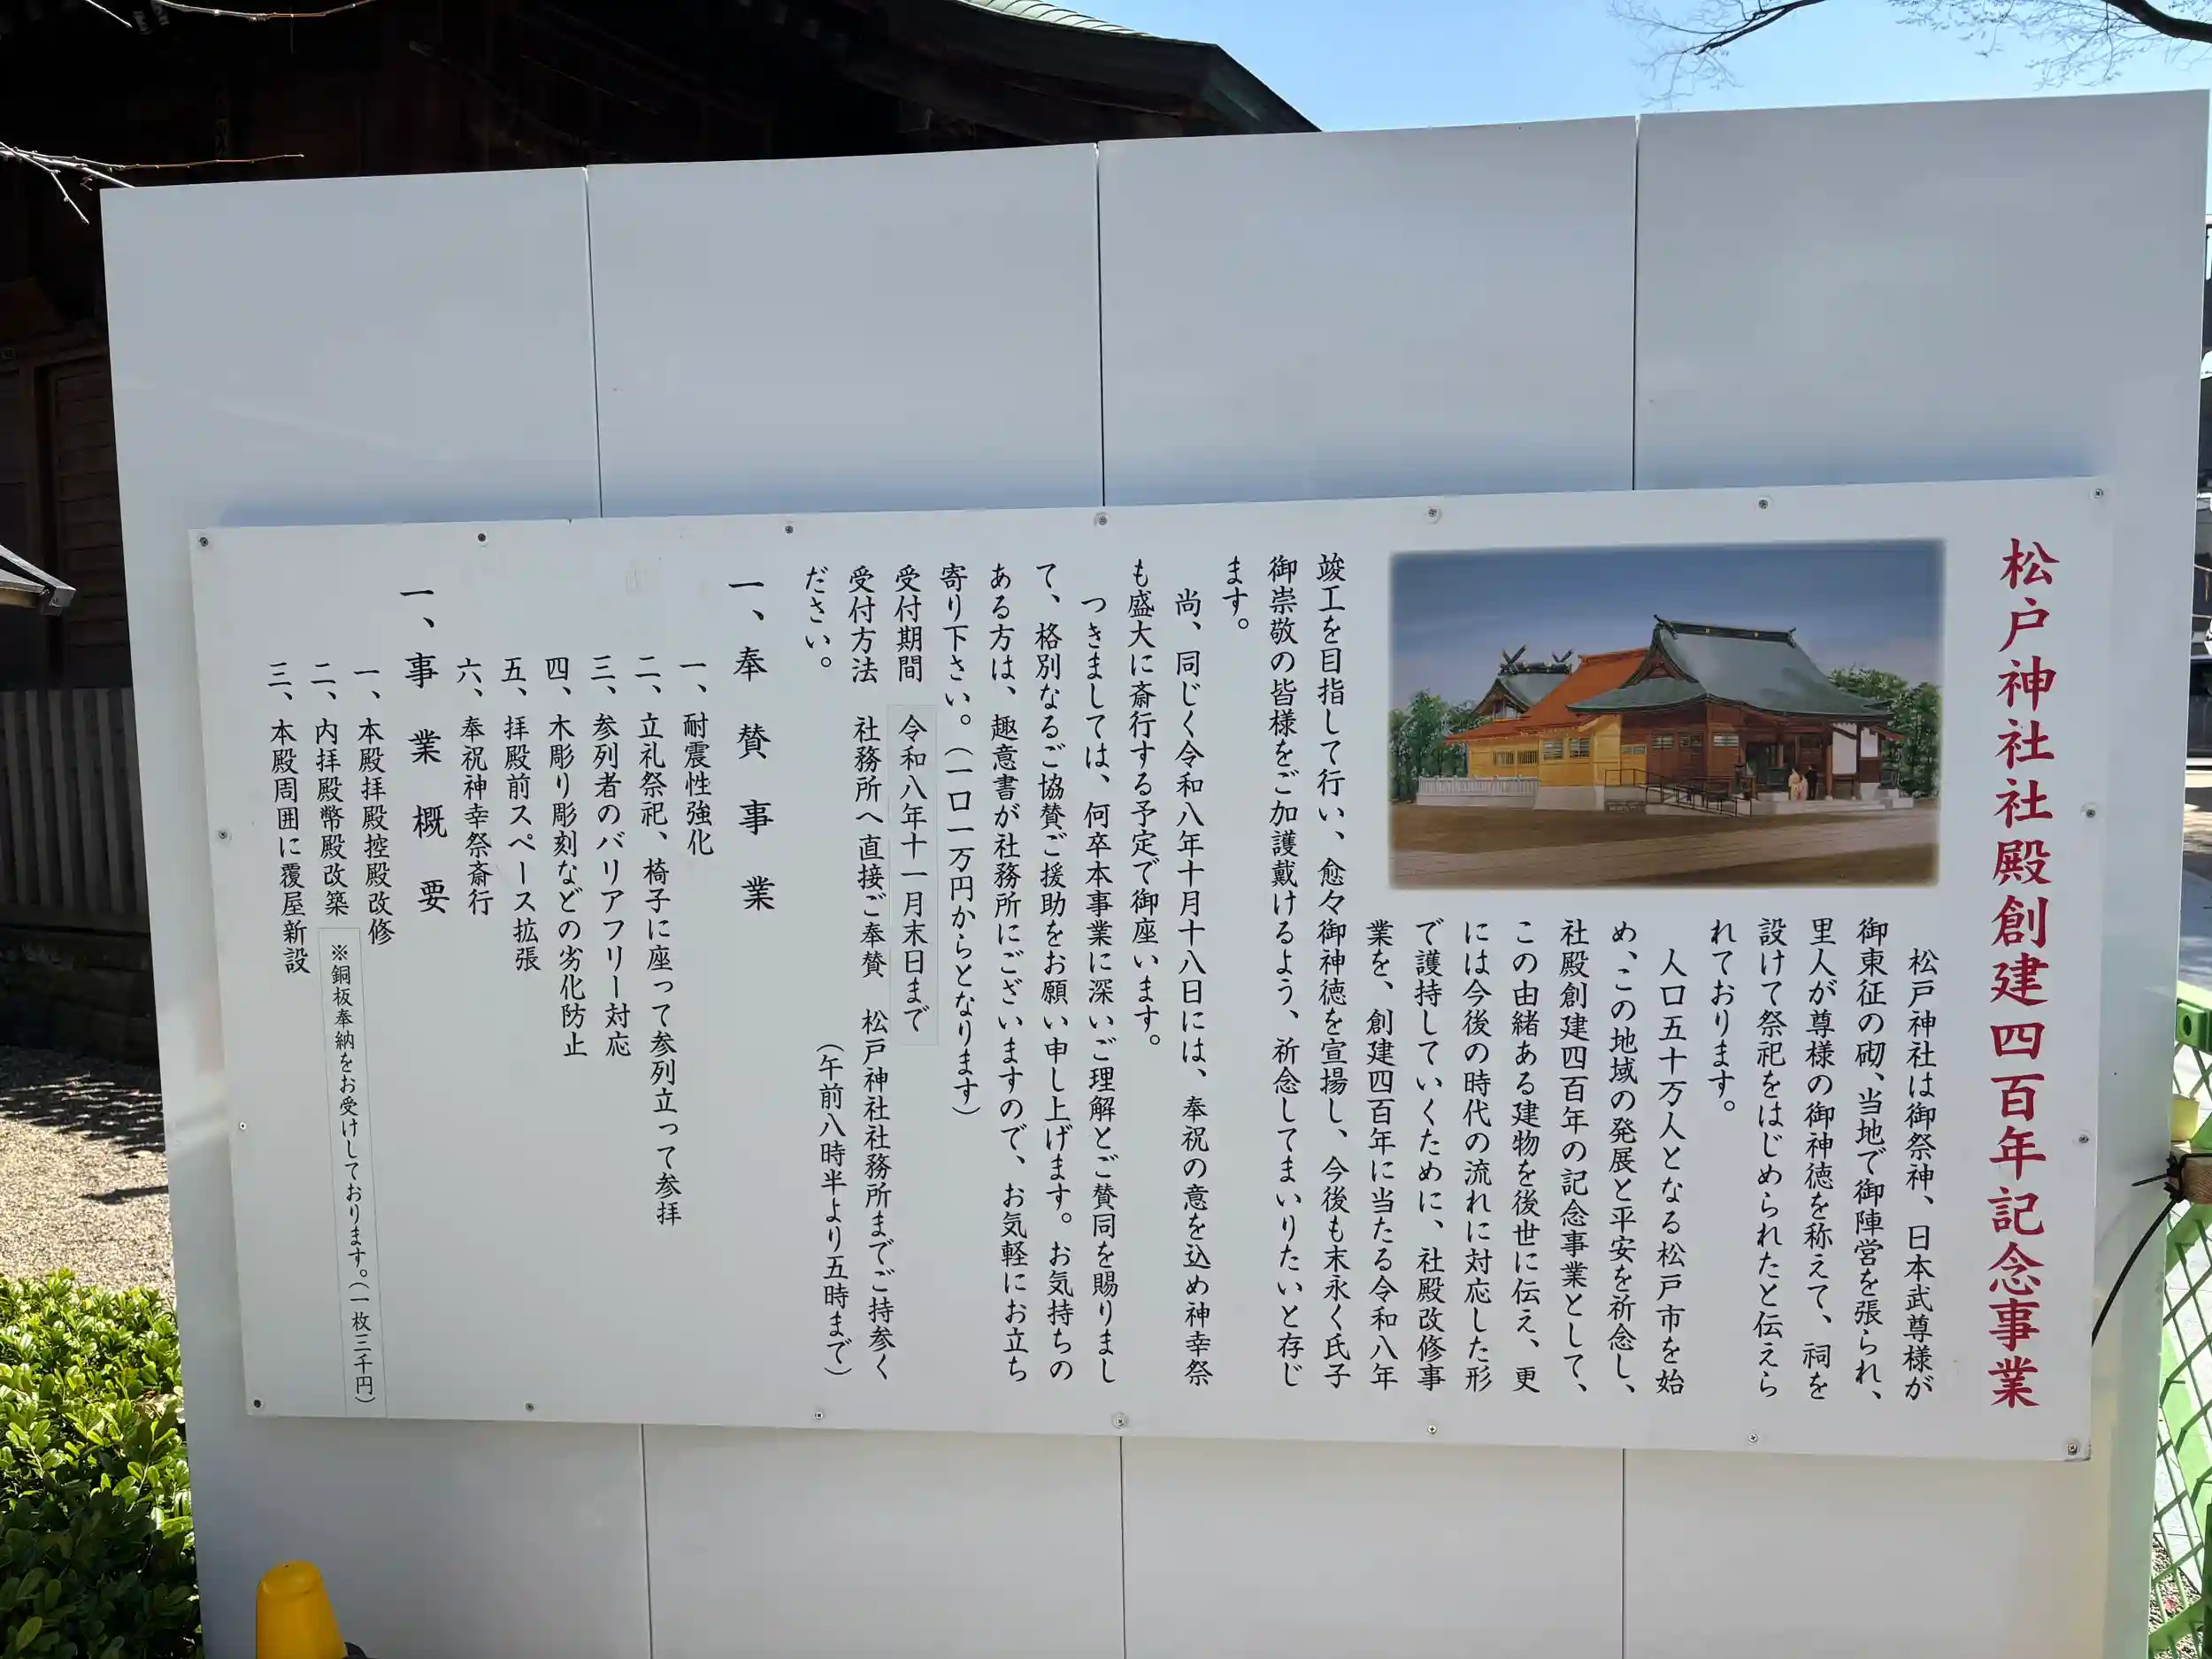 松戸神社社殿創建四百年記念事業
松戸神社は御祭神、日本武尊様が
御東征の砌、当地で御陣営を張られ、
里人が尊様の御神徳を称えて、祠を
設けて祭祀をはじめられたと伝えら
れております。
人口五十万人となる松戸市を始
め、この地域の発展と平安を祈念し、
社殿創建四百年の記念事業として、
この由緒ある建物を後世に伝え、更
には今後の時代の流れに対応した形
で護持していくために、社殿改修事
業を、創建四百年に当たる令和八年
竣工を目指して行い、愈々御神徳を宣揚し、今後も末永く氏子
御崇敬の皆様をご加護戴けるよう、祈念してまいりたいと存じ
ます。
尚、同じく令和八年十月十八日には、奉祝の意を込め神幸祭
も盛大に斎行する予定で御座います。
つきましては、何卒本事業に深いご理解とご賛同を賜りまし
て、格別なるご協賛ご援助をお願い申し上げます。お気持ちの
ある方は、趣意書が社務所にございますので、お気軽にお立ち
寄り下さい。（一口一万円からとなります）
受付期間 令和八年十一月末日まで
受付方法 社務所へ直接ご奉賛 松戸神社社務所までご持参く
ださい。 （午前八時半より五時まで）
一、奉賛事業
一、耐震性強化
二、立礼祭祀、椅子に座って参列立って参拝
三、参列者のバリアフリー対応
四、木彫り彫刻などの劣化防止
五、拝殿前スペース拡張
六、奉祝神幸祭斎行
一、事業概要
一、本殿拝殿控殿改修
二、内拝殿幣殿改築 ※銅板奉納をお受けしております。（一枚三千円）
三、本殿周囲に覆屋新設